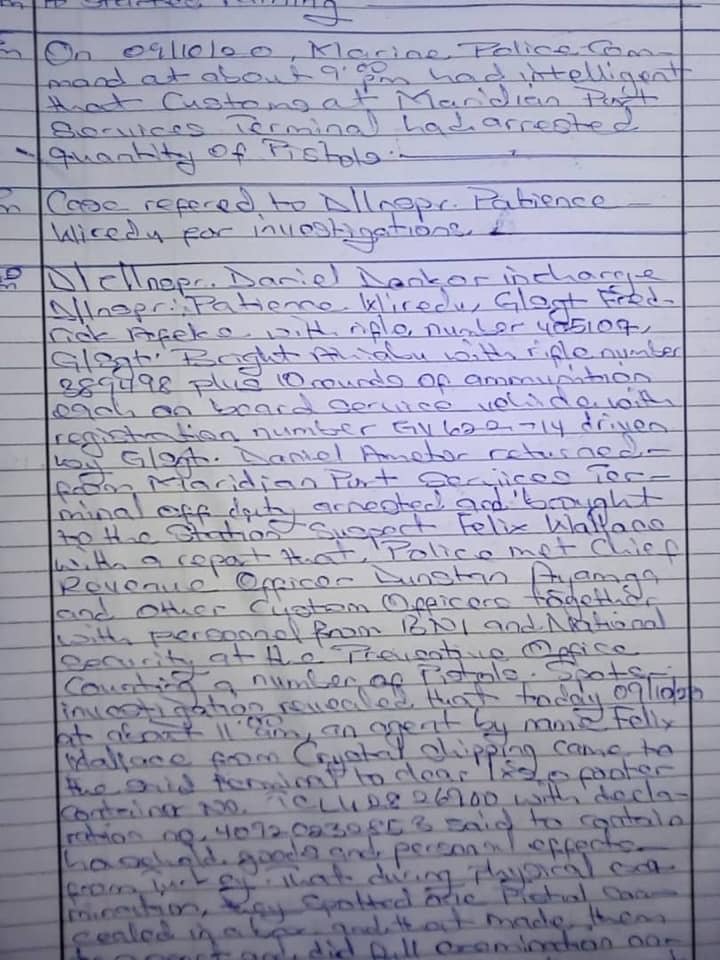 On 09/10/20, Marine Police Com-
mand at about 9:00 pm had intelligent
that Customs at Maridian Port
Services Terminal had arrested
quantity of Pistols.
Case refered to D/Inspr. Patience
Wiredu for investigations.
D/C/Inspr. Daniel Donkor incharge
D/Inspr. Patience Wiredu, G/Sgt Fred-
rick with rifle number 405107,
G/Sgt. Bright with rifle number
889498 plus 10 rounds of ammunition
each on board Service vehicle with
registration number GV 622-14 driven
by G/Sgt. Daniel Ametor returned
from Maridian Port Services Ter-
minal off duty, arrested and brought
to the Station Suspect Felix Wallace
with a report that, Police met Chief
Revenue Officer Dunstan Ayamga
and other Custom Officers together
with personnel from BNI and National
Security at the Preventive Office
Counting a number of Pistols. Spots
investigation revealed that today 09/10/20
at about 11:00 am, an agent by name Felix
Wallace from Crystal Shipping came to
the said terminal to clear footer
Container No. with decla-
ration no. said to contain
household goods and personal effects
from That during Physical exa-
mination, they spotted one Pistol con-
cealed in a and that made them
did full examination